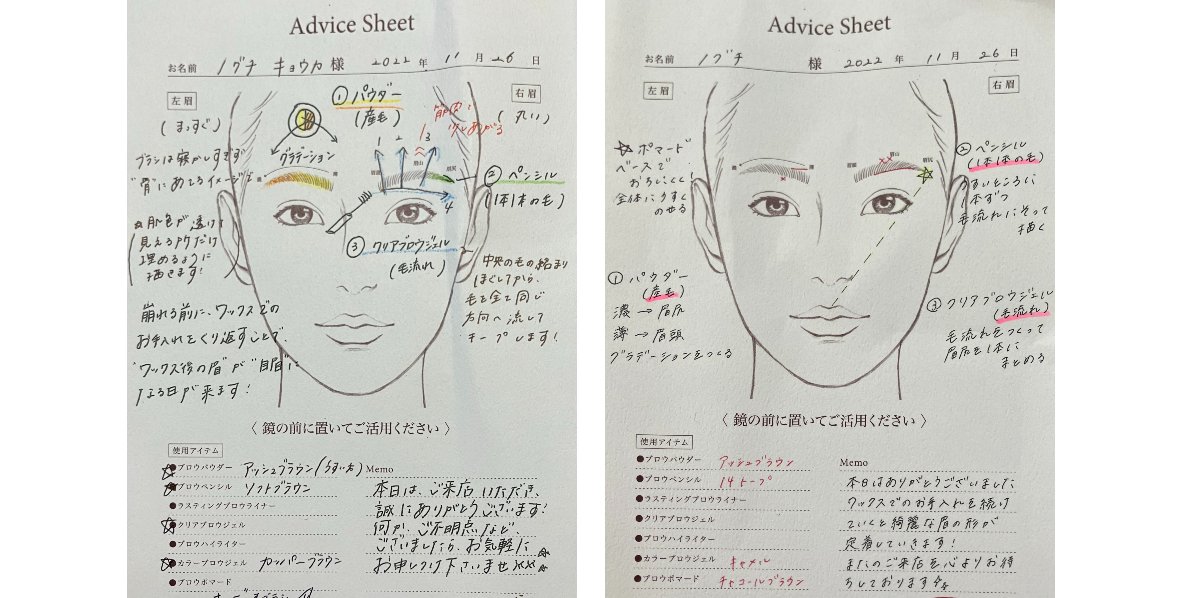 Advice Sheet
お名前 ノグチ キョウカ 様 2022 年 11 月 26 日
左眉
右眉
(まっすぐ)
(丸い)
① パウダー
(産毛)
筋肉
少し あがる
グラデーション
ブラシは寝かしすぎず
"骨"にあてるイメージで
1 2 3
眉山
眉頭
眉尻
4
② ペンシル
(1本1本の毛)
③ クリアブロウジェル
(毛流れ)
肌色が透けて
見える所だけ
埋めるように
描きます!
中央の毛の絡まり
ほぐしてから、
毛を全て同じ
方向へ流して
キープします!
崩れる前に、ワックスでの
お手入れをくり返すことで、
"ワックス後の眉"が"自眉"に
なる日が来ます!
〈 鏡の前に置いてご活用ください 〉
使用アイテム
●ブロウパウダー アッシュブラウン(うすい方)
●ブロウペンシル ソフトブラウン
●ラスティングブロウライナー
●クリアブロウジェル
●ブロウハイライター
●カラーブロウジェル カッパーブラウン
●ブロウポマード
Memo
本日は、ご来店いただき、
誠にありがとうございます!
何か、ご不明点など、
ございましたら、お気軽に
お申しつけ下さいませ
Advice Sheet
お名前 ノグチ 様 2022 年 11 月 26 日
左眉
右眉
☆ ポマード
ベースで
おちにくく!
全体にうすく
のせる
眉頭
眉山
眉尻
② ペンシル
(1本1本の毛)
うすいところに
1本ずつ
毛流れにそって
描く
① パウダー
(産毛)
濃 → 眉尻
薄 → 眉頭
グラデーションをつくる
③ クリアブロウジェル
(毛流れ)
毛流れをつくって
眉尻を1本に
まとめる
〈 鏡の前に置いてご活用ください 〉
使用アイテム
●ブロウパウダー アッシュブラウン
●ブロウペンシル 14 トープ
●ラスティングブロウライナー
●クリアブロウジェル
●ブロウハイライター
●カラーブロウジェル キャメル
●ブロウポマード チャコールブラウン
Memo
本日はありがとうございました
ワックスでのお手入れを続け
ていくと綺麗な眉の形が
定着していきます!
またのご来店を心よりお待
ちしております